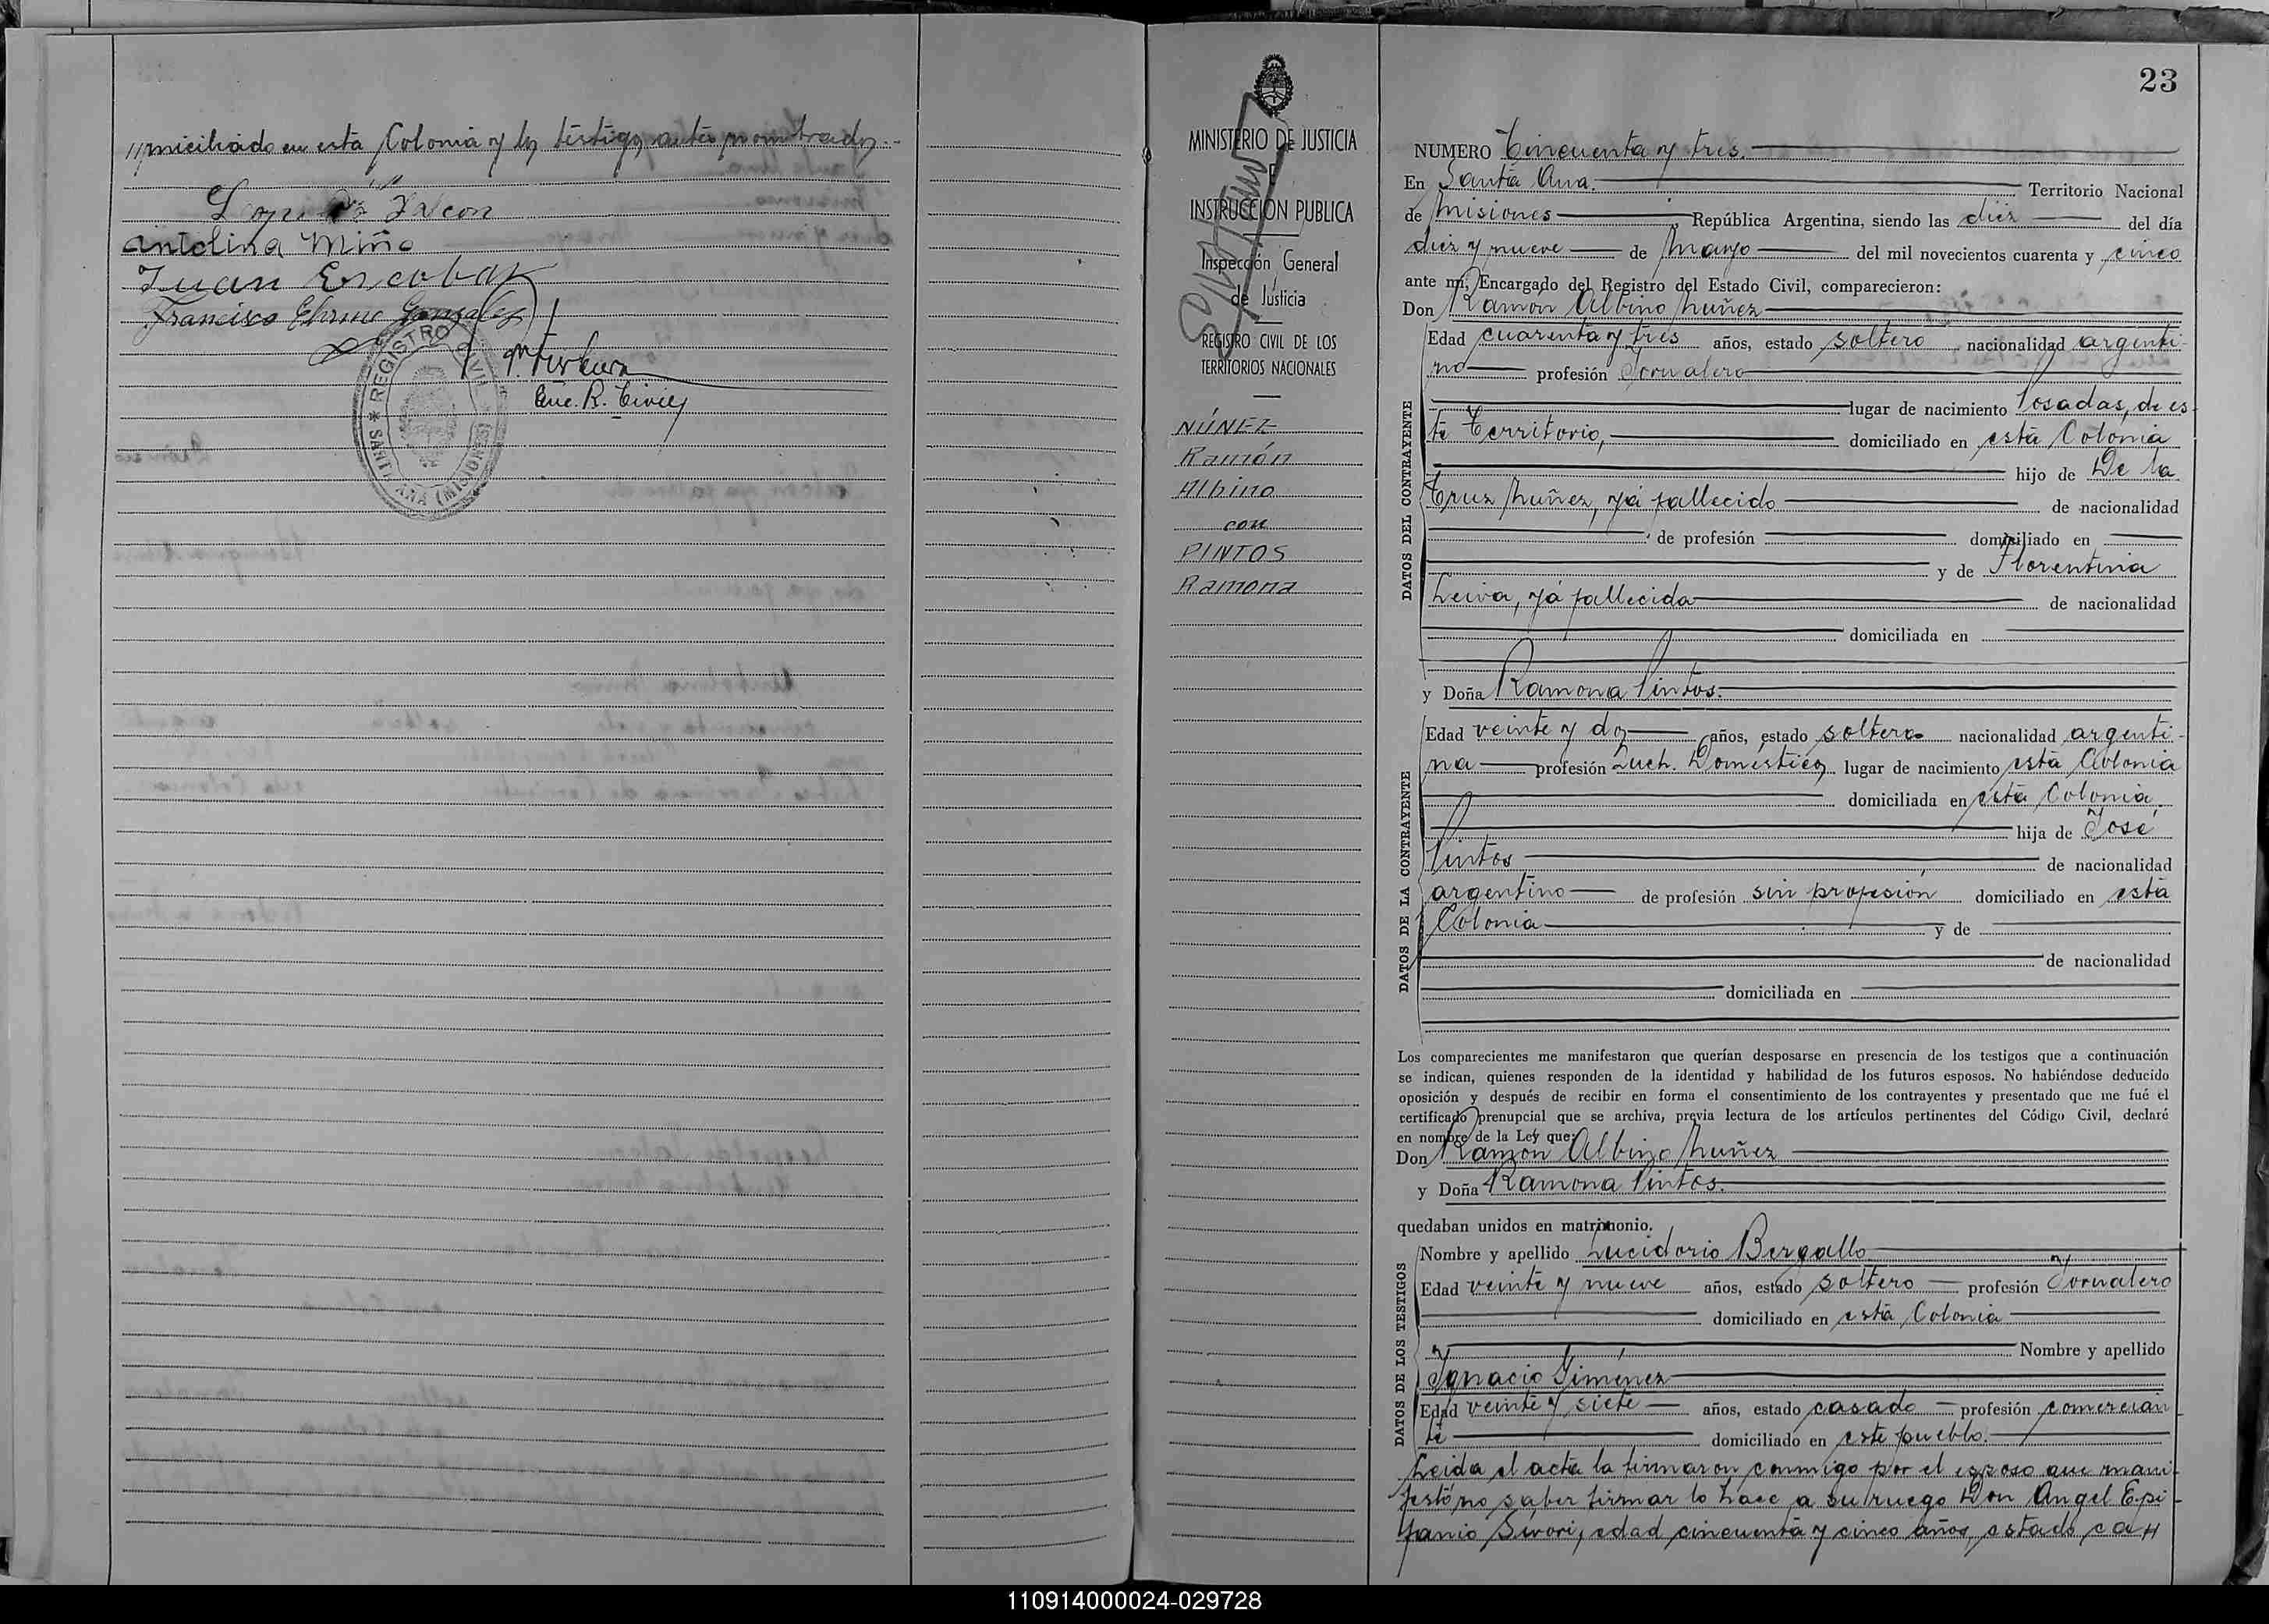 //miciliado en esta Colonia y los testigos antes nombrados.-
Antolina Miño
Juan Escobar
Francisco Gonzalez
Enc. R. Civil
* REGISTRO CIVIL *
SANTA ANA (MISIONES)
MINISTERIO DE JUSTICIA
E
INSTRUCCIÓN PUBLICA
Inspección General
de Justicia
REGISTRO CIVIL DE LOS
TERRITORIOS NACIONALES
NÚÑEZ
Ramón
Albino
con
PINTOS
Ramona
23
NUMERO Cincuenta y tres.
En Santa Ana. Territorio Nacional
de Misiones República Argentina, siendo las diez del día
diez y nueve de Mayo del mil novecientos cuarenta y cinco
ante mí, Encargado del Registro del Estado Civil, comparecieron:
Don Ramon Albino Nuñez
DATOS DEL CONTRAYENTE
Edad cuarenta y tres años, estado soltero nacionalidad argenti-
no profesión Jornalero
lugar de nacimiento Posadas, de es-
te Territorio, domiciliado en esta Colonia
hijo de De la
Cruz Nuñez, ya fallecido de nacionalidad
de profesión domiciliado en
y de Florentina
Leiva, ya fallecida de nacionalidad
domiciliada en
y Doña Ramona Pintos.
DATOS DE LA CONTRAYENTE
Edad veinte y dos años, estado soltera nacionalidad argenti-
na profesión Queh. Domésticos lugar de nacimiento esta Colonia
domiciliada en esta Colonia.
hija de José
Pintos de nacionalidad
argentino de profesión sin profesión domiciliado en esta
Colonia y de
de nacionalidad
domiciliada en
Los comparecientes me manifestaron que querían desposarse en presencia de los testigos que a continuación
se indican, quienes responden de la identidad y habilidad de los futuros esposos. No habiéndose deducido
oposición y después de recibir en forma el consentimiento de los contrayentes y presentado que me fué el
certificado prenupcial que se archiva, previa lectura de los artículos pertinentes del Código Civil, declaré
en nombre de la Ley que:
Don Ramon Albino Nuñez
y Doña Ramona Pintos.
quedaban unidos en matrimonio.
DATOS DE LOS TESTIGOS
Nombre y apellido Lucidorio Bergallo
Edad veinte y nueve años, estado soltero profesión Jornalero
domiciliado en esta Colonia
y Nombre y apellido
Ignacio Giménez
Edad veinte y siete años, estado casado profesión comercian
te domiciliado en este pueblo.
Leida el acta la firmaron conmigo por el esposo que mani-
festó no saber firmar lo hace a su ruego Don Angel Epi-
fanio Sivori, edad cincuenta y cinco años, estado ca//
110914000024-029728